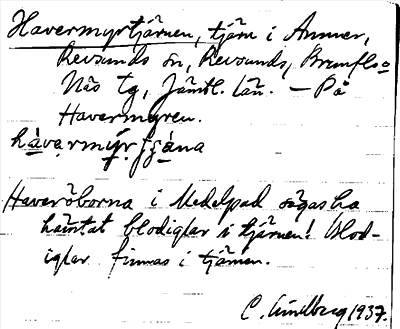 Havermyrtjärnen, tjärn i Anmer,
Revsunds sn, Revsunds, Brunflo o
Näs tg, Jämtl. län. — På
Havermyren.
hávarmýr
Haveröborna i Medelpad sägas ha
hämtat blodiglar i tjärnen! Blod-
iglar finnas i tjärnen.
C. Lindberg 1937.